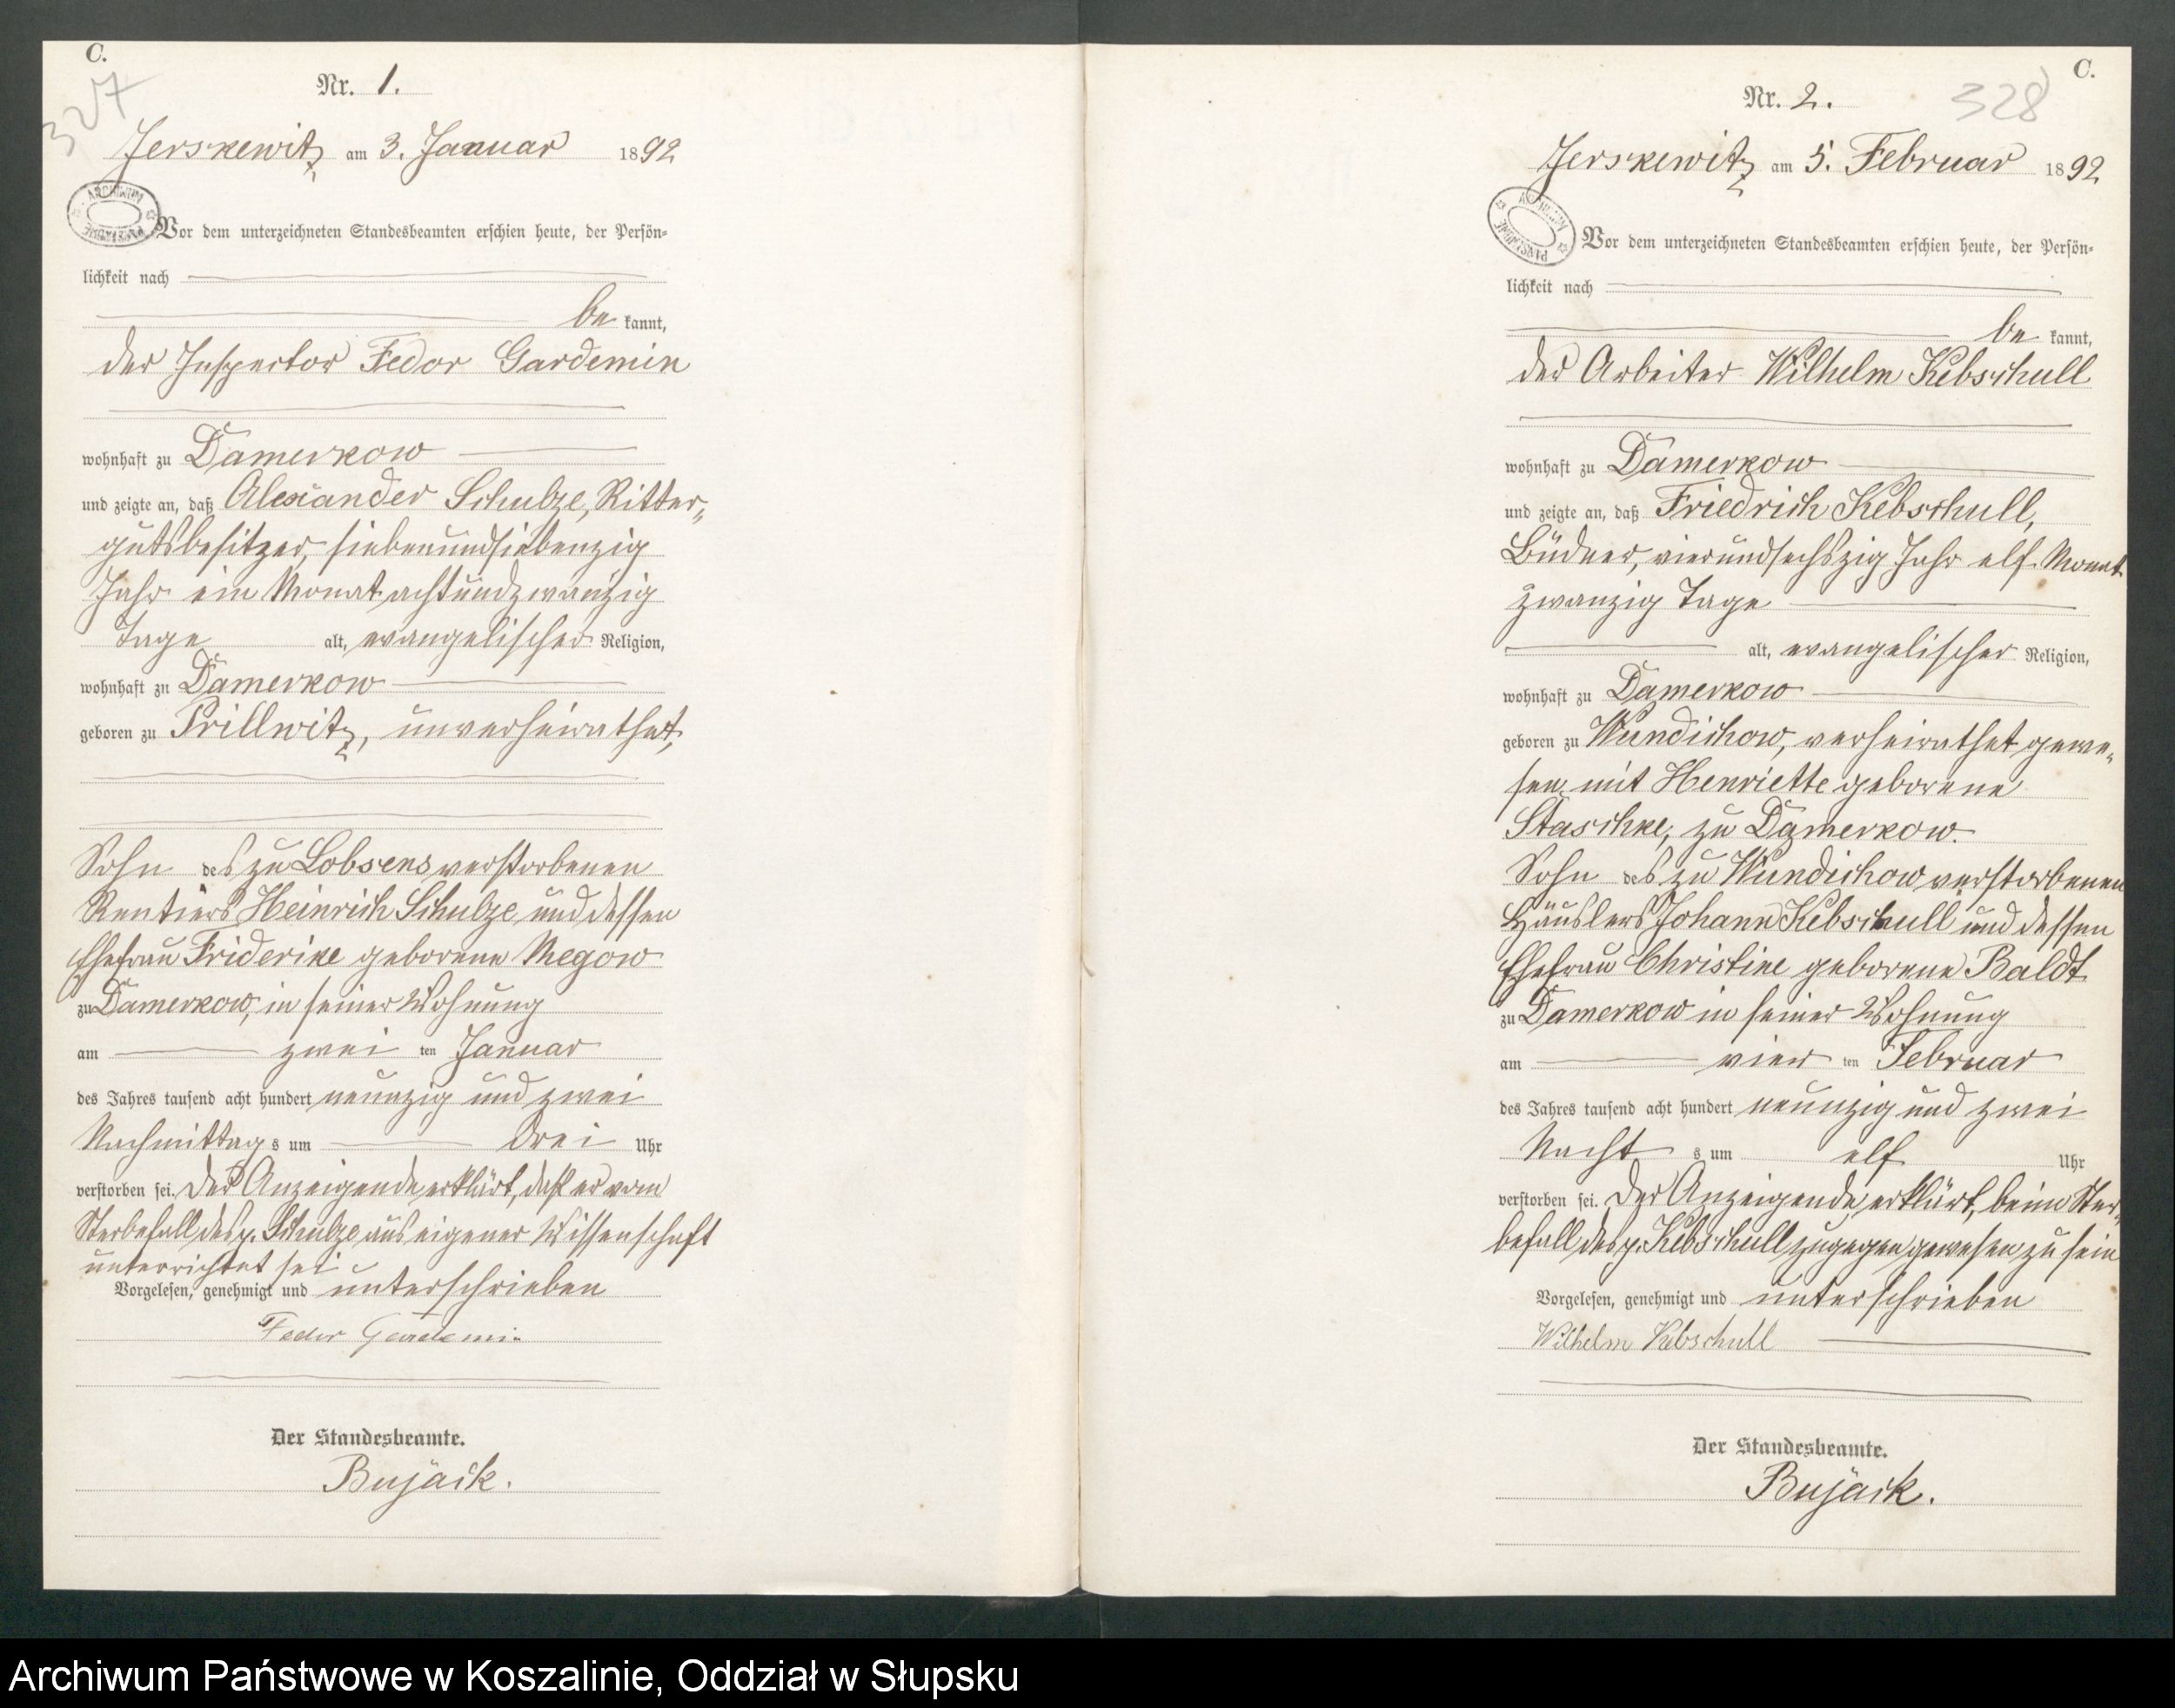 C.
327
Nr. 1.
Jerskewitz am 3. Januar 1892
ARCHIWUM
PAŃSTWOWE
Vor dem unterzeichneten Standesbeamten erschien heute, der Persön-
lichkeit nach
be kannt,
der Inspector Fedor Gardemin
wohnhaft zu Damerkow
und zeigte an, daß Alexander Schulze, Ritter-
gutsbesitzer, siebenundsiebenzig
Jahr ein Monat achtundzwanzig
Tage alt, evangelischer Religion,
wohnhaft zu Damerkow
geboren zu Prillwitz, unverheirathet,
Sohn des zu Lobsens verstorbenen
Rentiers Heinrich Schulze und dessen
Ehefrau Friderike geborene Megow
zu Damerkow, in seiner Wohnung
am zwei ten Januar
des Jahres tausend acht hundert neunzig und zwei
Nachmittag s um drei Uhr
verstorben sei. Der Anzeigende erklärt, daß er vom
Sterbefall des p. Schulze aus eigener Wissenschaft
unterrichtet sei
Vorgelesen, genehmigt und unterschrieben
Fedor Gardemin
Der Standesbeamte.
Bujack.
C.
328
Nr. 2.
Jerskewitz am 5. Februar 1892
ARCHIWUM
PAŃSTWOWE
Vor dem unterzeichneten Standesbeamten erschien heute, der Persön-
lichkeit nach
be kannt,
der Arbeiter Wilhelm Kebschull
wohnhaft zu Damerkow
und zeigte an, daß Friedrich Kebschull,
Büdner, vierundsechszig Jahr elf Monat
zwanzig Tage
alt, evangelischer Religion,
wohnhaft zu Damerkow
geboren zu Wundichow, verheirathet gewe-
sen mit Henriette geborene
Staschke, zu Damerkow.
Sohn des zu Wundichow verstorbenen
Häuslers Johann Kebschull und dessen
Ehefrau Christine geborene Baldt
zu Damerkow in seiner Wohnung
am vier ten Februar
des Jahres tausend acht hundert neunzig und zwei
Nacht s um elf Uhr
verstorben sei. Der Anzeigende erklärt, beim Ster-
befall des p. Kebschull zugegen gewesen zu sein
Vorgelesen, genehmigt und unterschrieben
Wilhelm Kebschull
Der Standesbeamte.
Bujack.
Archiwum Państwowe w Koszalinie, Oddział w Słupsku